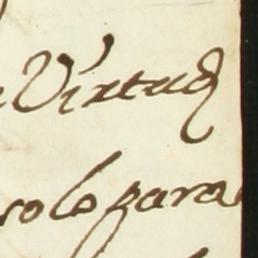 Virtud
solo para